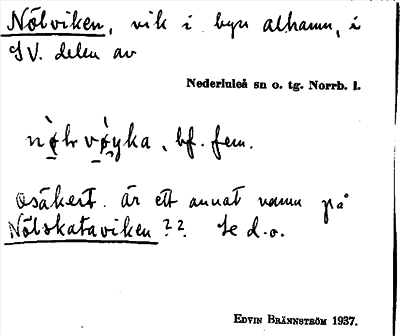 Nölviken, vik i byn Alhamn, i
SV. delen av
Nederluleå sn o. tg. Norrb. l.
bf. fem.
Osäkert. Är ett annat namn på
Nölskataviken?? Se d.o.
EDVIN BRÄNNSTRÖM 1937.